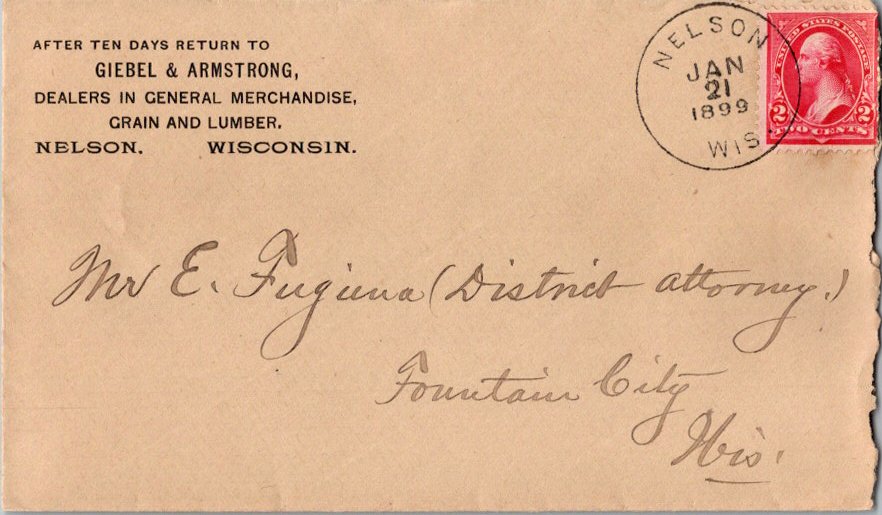 AFTER TEN DAYS RETURN TO
GIEBEL & ARMSTRONG,
DEALERS IN GENERAL MERCHANDISE,
GRAIN AND LUMBER.
NELSON. WISCONSIN.
NELSON
JAN
21
1899
WIS
UNITED STATES POSTAGE
2 2
TWO CENTS
Mr E. Fugina (District attorney.)
Fountain City
Wis.